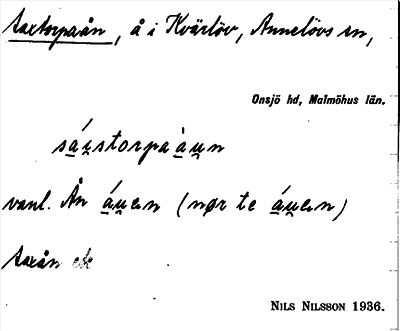 Saxtorpaån, å i Kvärlöv, Annelövs sn,
Onsjö hd, Malmöhus län.
sáu̯storpaàu̯n
vanl. Ån áu̯en (nør te áu̯en)
Saxån
NILS NILSSON 1936.